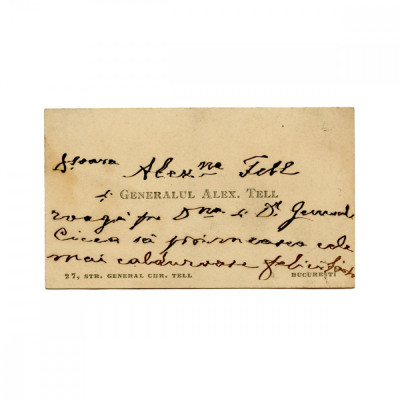 Dnoara Alexna Tell
și GENERALUL ALEX. TELL
roagă pe Dna și Dl General
Cicea să primească cele
mai călduroase felicitări
27, STR. GENERAL CHR. TELL BUCUREȘTI